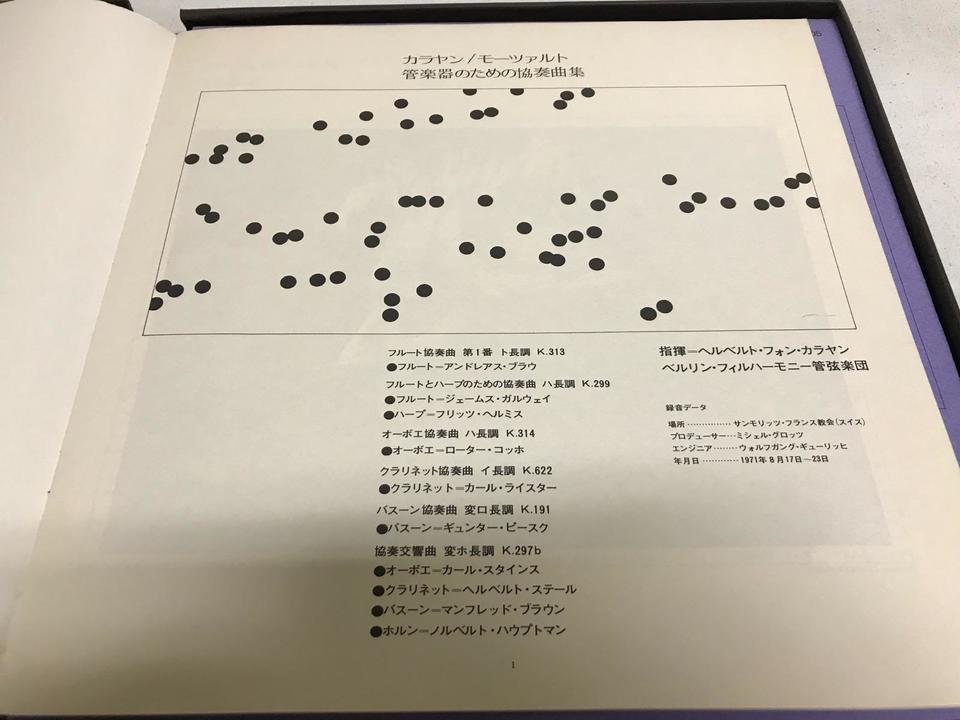 05
カラヤン/モーツァルト
管楽器のための協奏曲集
フルート協奏曲 第1番 ト長調 K.313
●フルート=アンドレアス・ブラウ
フルートとハープのための協奏曲 ハ長調 K.299
●フルート=ジェームス・ガルウェイ
●ハープ=フリッツ・ヘルミス
オーボエ協奏曲 ハ長調 K.314
●オーボエ=ローター・コッホ
クラリネット協奏曲 イ長調 K.622
●クラリネット=カール・ライスター
バスーン協奏曲 変ロ長調 K.191
●バスーン=ギュンター・ピースク
協奏交響曲 変ホ長調 K.297b
●オーボエ=カール・スタインス
●クラリネット=ヘルベルト・ステール
●バスーン=マンフレッド・ブラウン
●ホルン=ノルベルト・ハウプトマン
指揮=ヘルベルト・フォン・カラヤン
ベルリン・フィルハーモニー管弦楽団
録音データ
場所……………サンモリッツ・フランス教会(スイス)
プロデューサー…ミシェル・グロッツ
エンジニア………ウォルフガング・ギューリッヒ
年月日…………1971年8月17日～23日
1